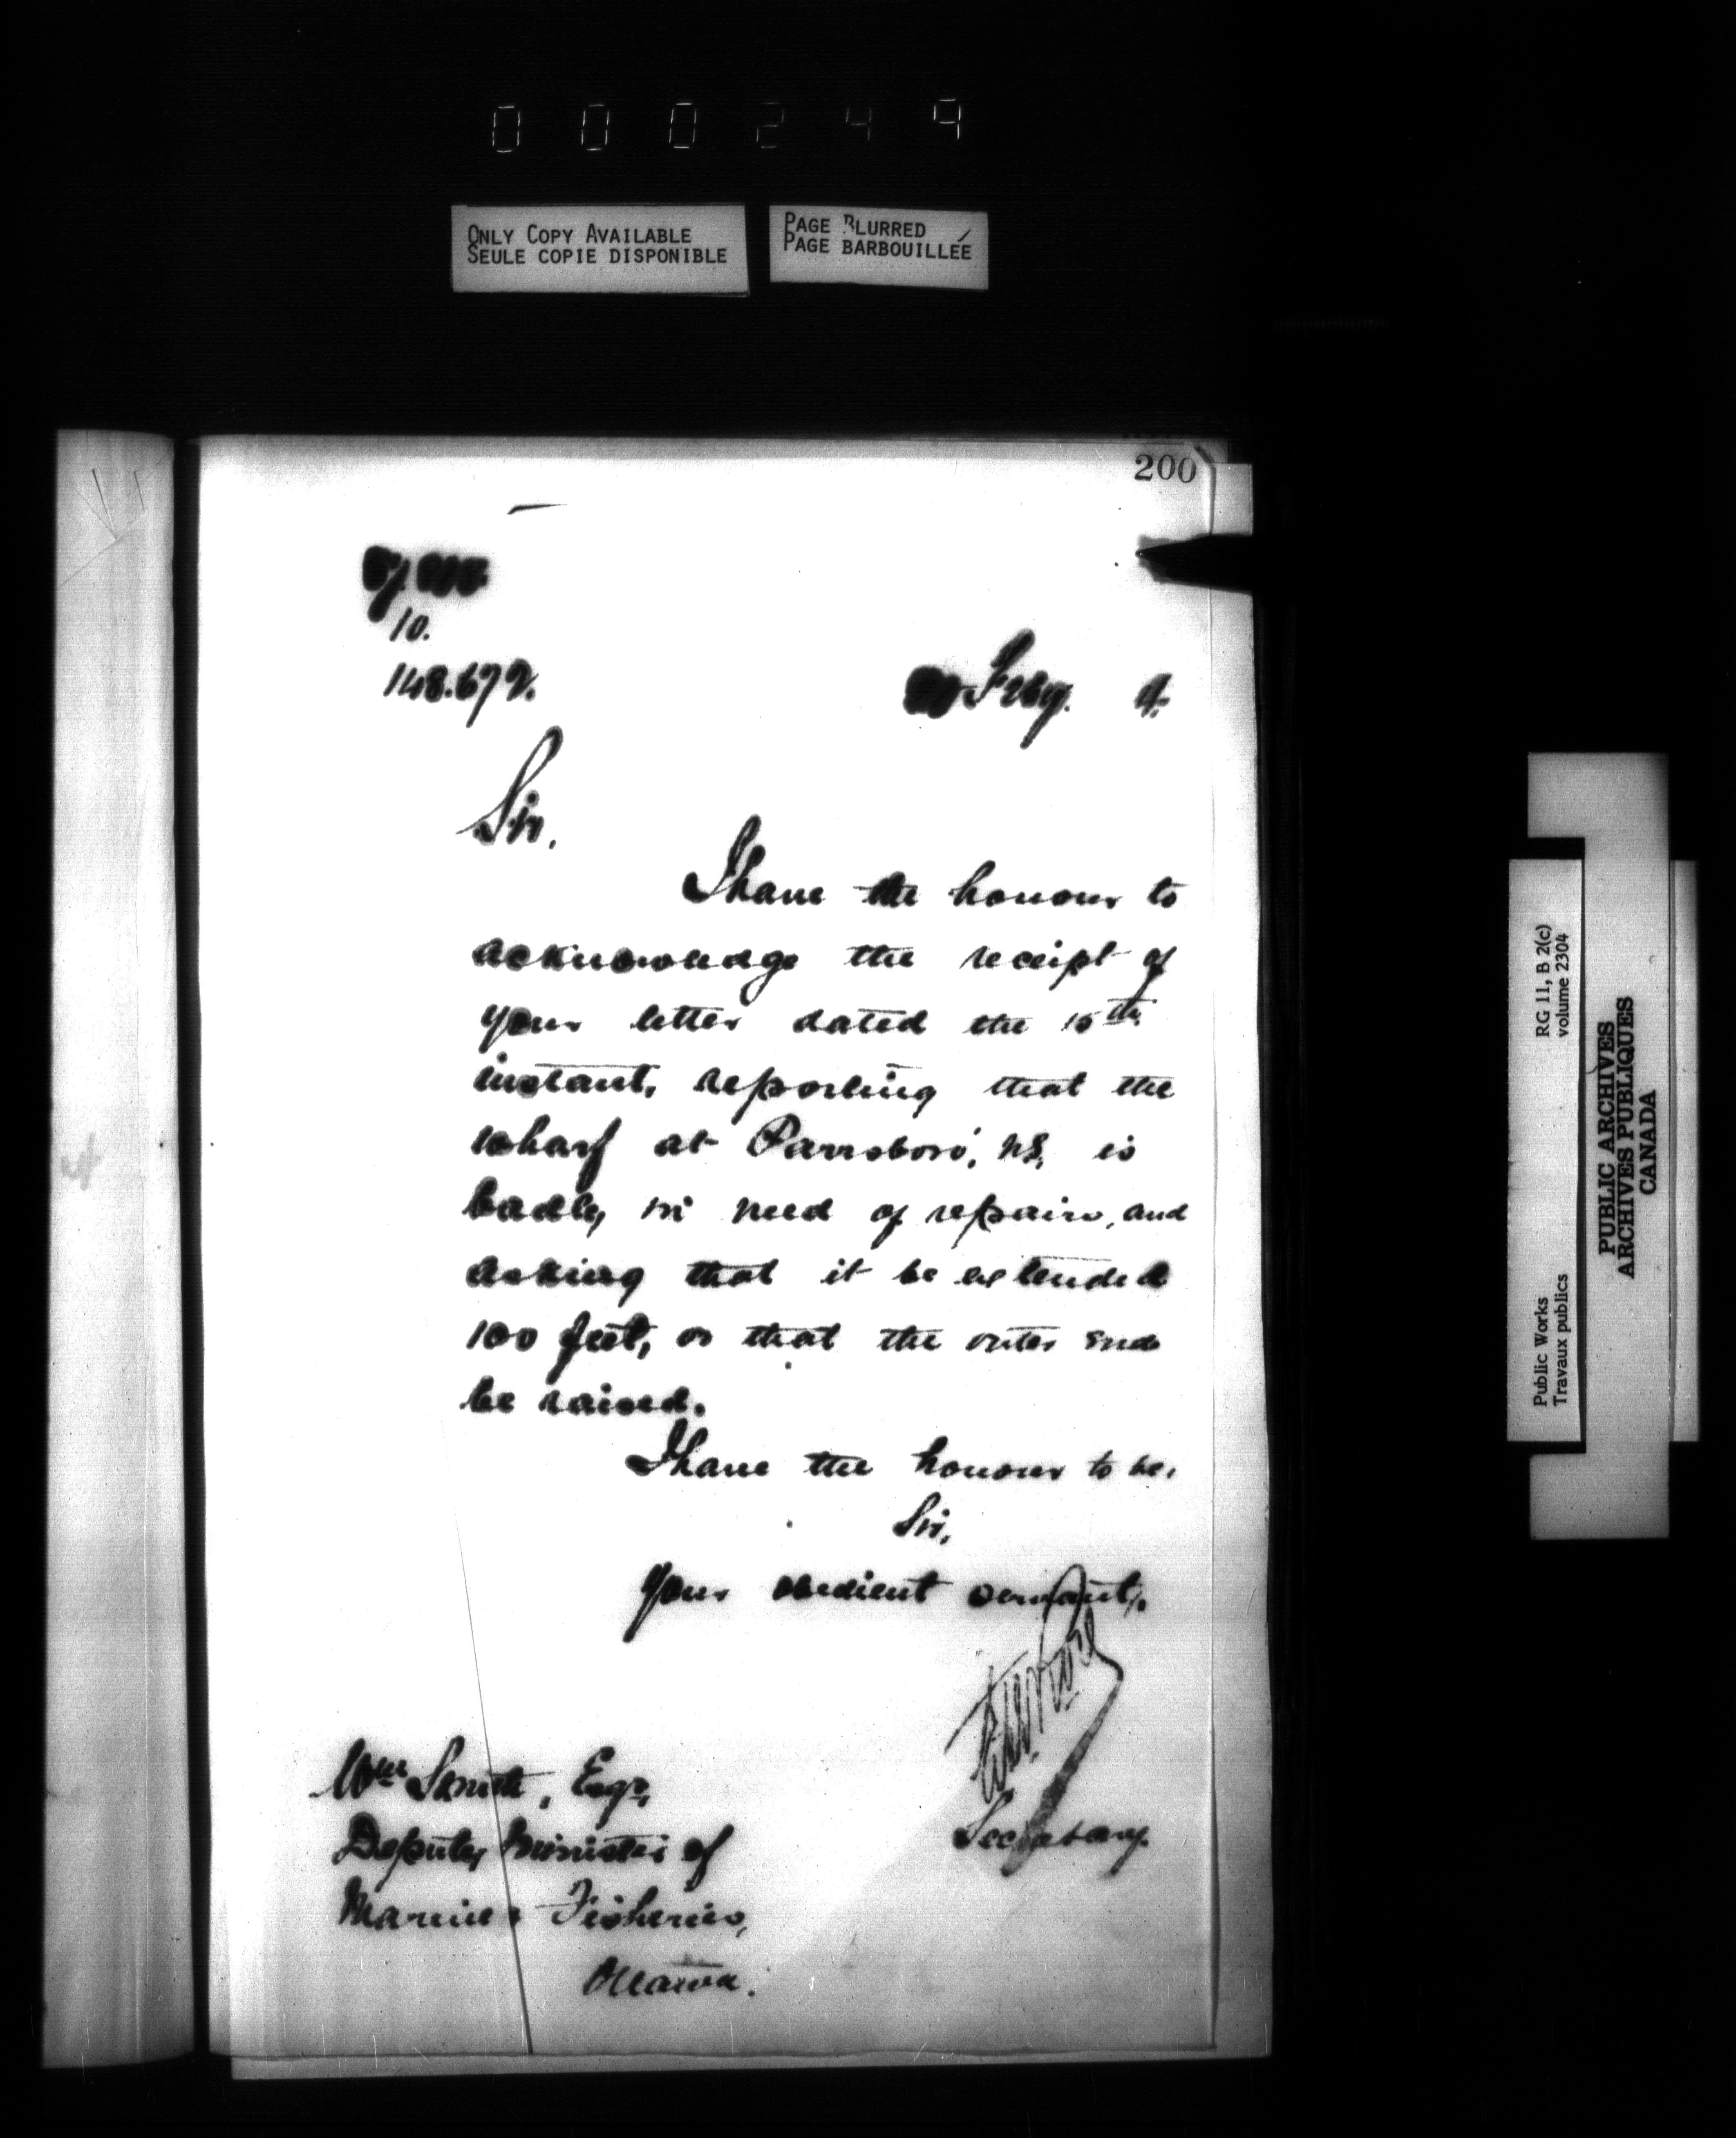 000249
ONLY COPY AVAILABLE
SEULE COPIE DISPONIBLE
PAGE BLURRED
PAGE BARBOUILLÉE
200
10.
148.672.
Feby. 4.
Sir,
I have the honour to
acknowledge the receipt of
your letter dated the 15th
instant, reporting that the
wharf at Parrsboro', N.S. is
badly in need of repairs, and
asking that it be extended
100 feet, or that the outer end
be raised.
I have the honour to be,
Sir,
Your obedient servant,
Secretary.
Wm Smith, Esqr,
Deputy Minister of
Marine & Fisheries,
Ottawa.
Public Works
Travaux publics
RG 11, B 2(c)
volume 2304
PUBLIC ARCHIVES
ARCHIVES PUBLIQUES
CANADA